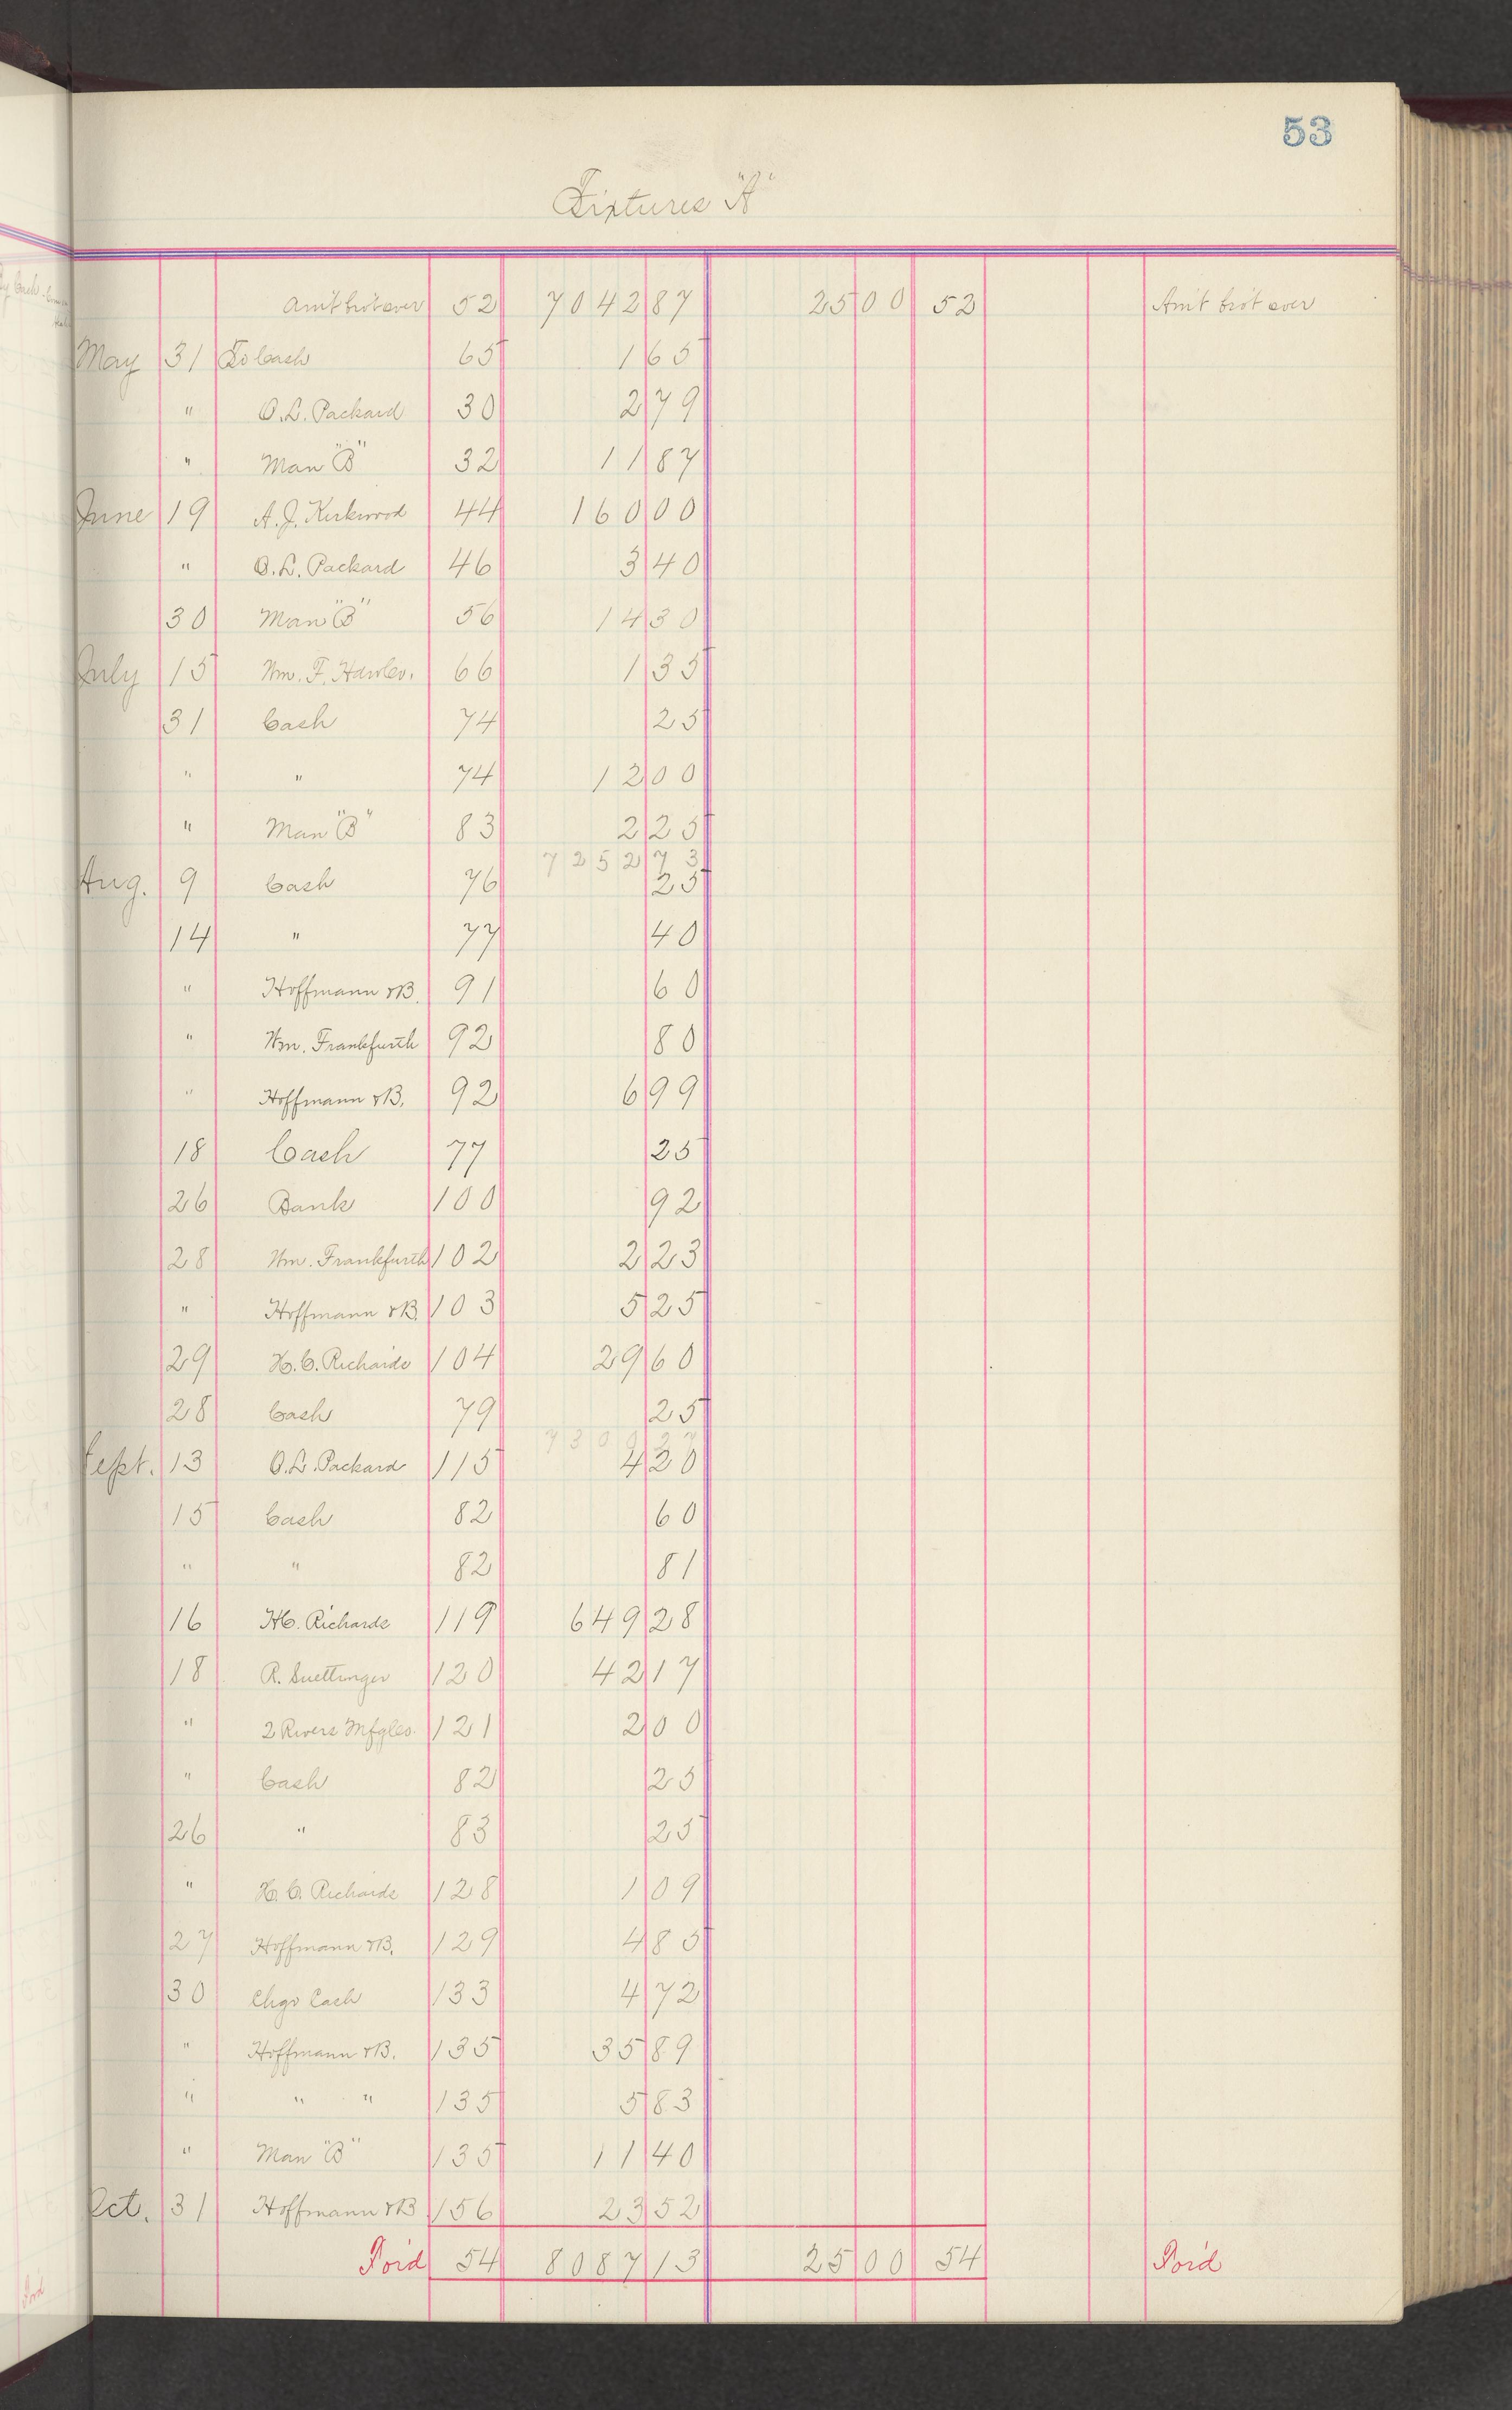 53
Fixtures "A"
Am't bro't over 52 7042 87 25 00 52 Am't bro't over
May 31 To Cash 65 1 65
" O.L. Packard 30 2 79
" Man "B" 32 11 87
June 19 A.J. Kirkwood 44 160 00
" O.L. Packard 46 3 40
30 Man "B" 56 14 30
July 15 Wm. F. 66 1 35
31 Cash 74 25
" " 74 12 00
" Man "B" 83 2 25
7252 73
Aug. 9 Cash 76 25
14 " 77 40
" Hoffmann &B. 91 60
" Wm. Frankfurth 92 80
" Hoffmann &B. 92 6 99
18 Cash 77 25
26 Bank 100 92
28 Wm. Frankfurth 102 2 23
" Hoffmann &B. 103 5 25
29 H.C. Richards 104 29 60
28 Cash 79 25
7300 27
Sept. 13 O.L. Packard 115 4 20
15 Cash 82 60
" " 82 81
16 H.C. Richards 119 649 28
18 R. Suettinger 120 42 17
" 2 Rivers Mfg Co. 121 2 00
" Cash 82 25
26 " 83 25
" H.C. Richards 128 1 09
27 Hoffmann &B. 129 4 85
30 Chgo Cash 133 4 72
" Hoffmann &B. 135 35 89
" " " 135 5 83
" Man "B" 135 11 40
Oct. 31 Hoffmann &B 156 23 52
For'd 54 8087 13 25 00 54 For'd